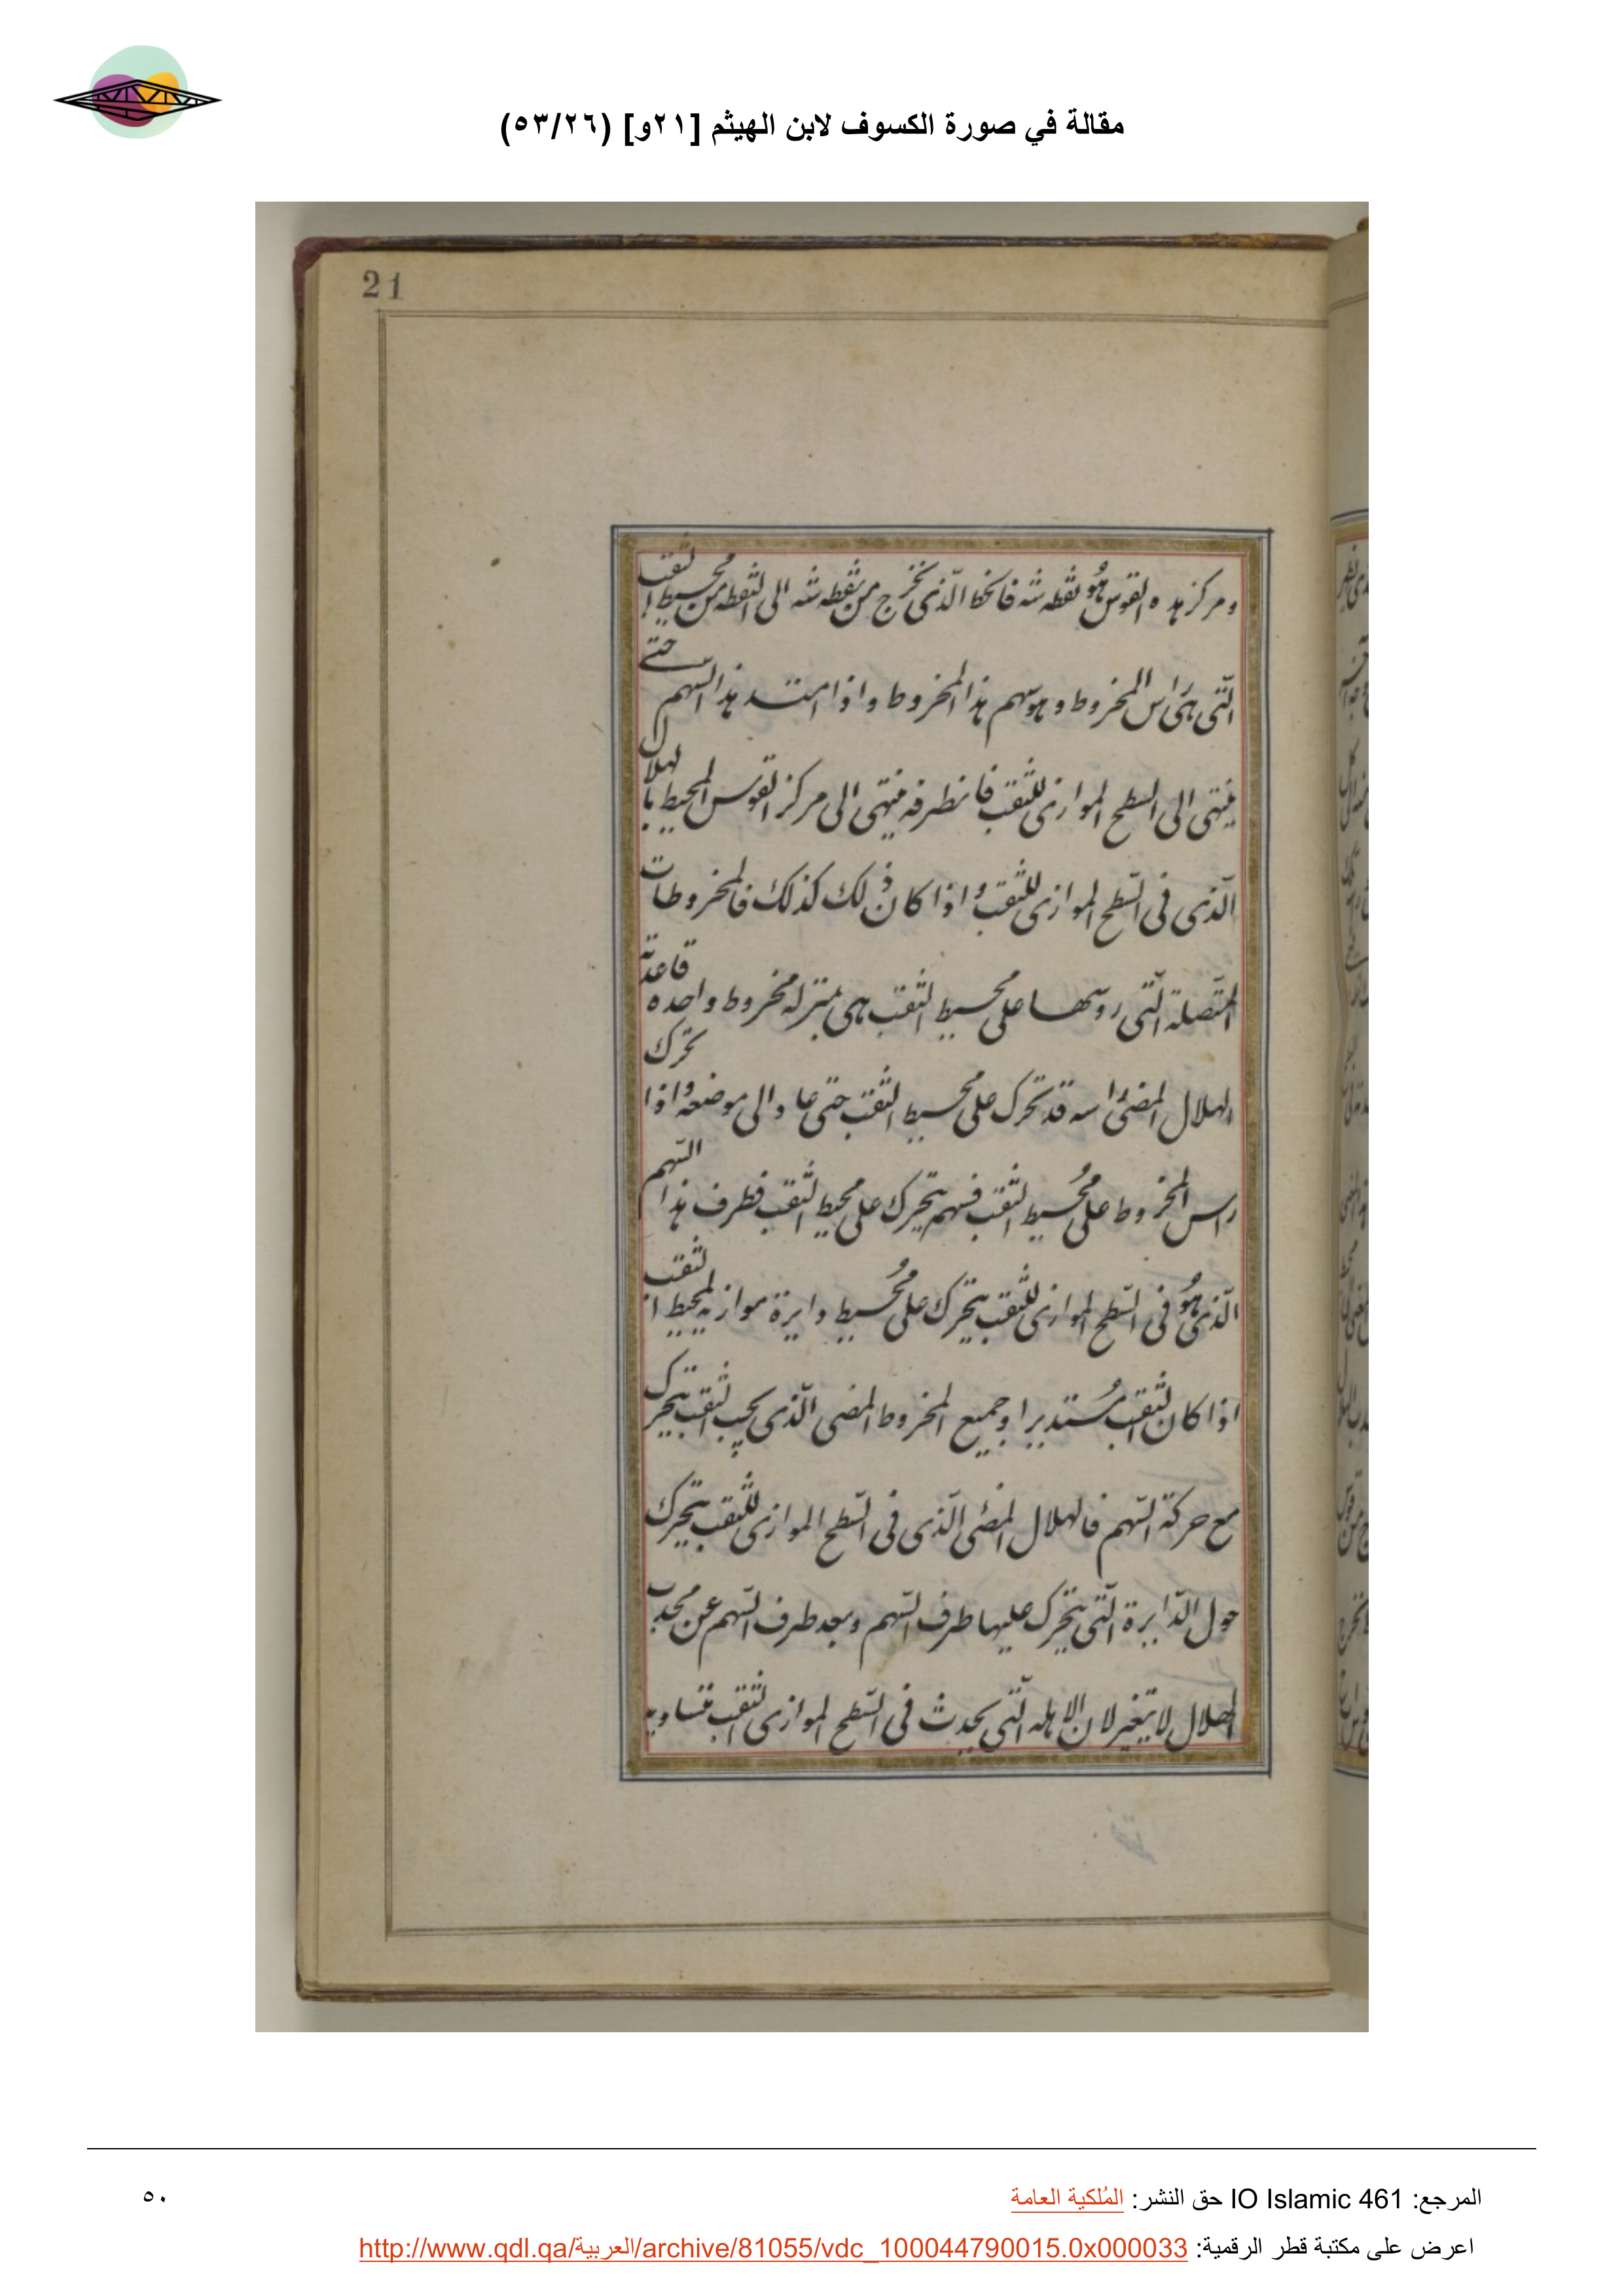 مقالة في صورة الكسوف لابن الهيثم [٢١و] (٥٣/٢٦)
21
ومركز هذه القوس هُو نقطه شه فالخط الّذى يخرج من نقطه شه الى النقطه من محيط الثقب
الّتى هى راس المخروط وهو سهم هذا المخروط واذا امتد هذا السّهم حتى
ينتهى الى السطح الموازى للثقب فان طرفه ينتهى الى مركز القوس المحيط بالهلال
الّذى فى السّطح الموازى للثقب واذا كان ذلك كذلك فالمخروطات
المتّصلة الّتى روسها على محيط الثقب هى بمنزله مخروط واحده قاعدته
الهلال المضئ راسه قد تحرك على محيط الثقب حتى عاد الى موضعه واذا تحرك
راس المخروط على مُحيط الثقب فسهمه يتحرك على محيط الثقب فطرف هذا السّهم
الّذى هُو فى السّطح الموازى للثقب يتحرك على مُحيط دايرة موازيه لمحيط الثقب
اذا كان الثقب مُستديرا وجميع المخروط المضى الّذى يحيب الثقب يتحرك
مع حركة السّهم فالهلال المضئ الّذى فى السّطح الموازى للثقب يتحرك
حول الدّايرة الّتى يتحرك عليها طرف السّهم وبعد طرف السّهم عن محدب
الهلال لا يتغير لان الاهله الّتى يحدث فى السّطح الموازى الثقب متساويه
المرجع: IO Islamic 461 حق النشر: المُلكية العامة
٥٠
اعرض على مكتبة قطر الرقمية: http://www.qdl.qa/العربية/archive/81055/vdc_100044790015.0x000033